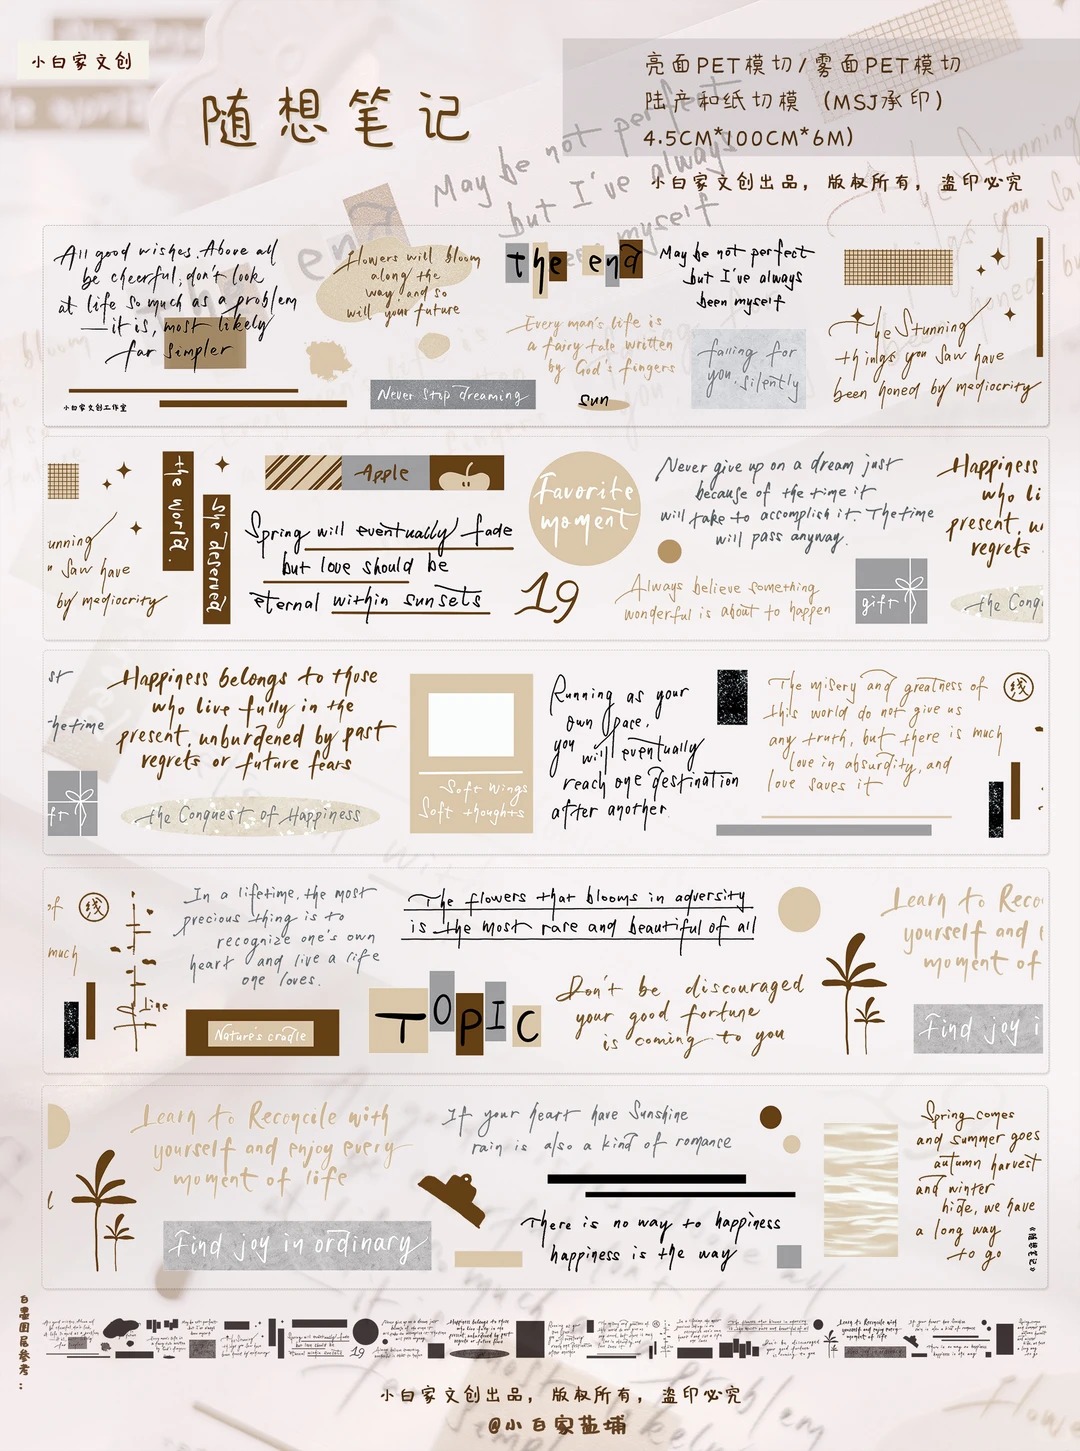 小白家文创
随想笔记
亮面PET模切/雾面PET模切
陆产和纸切模 (MSJ承印)
4.5CM*100CM*6M)
小白家文创出品，版权所有，盗印必究
May be not perfect
but I've always
been myself
All good wishes. Above all
be cheerful, don't look
at life so much as a problem
—it is, most likely
far simpler
小白家文创工作室
Flowers will bloom
along the
way. and so
will your future
Never stop dreaming
the end
Every man's life is
a fairy tale written
by God's fingers
sun
May be not perfect
but I've always
been myself
falling for
you. silently
The Stunning
things you saw have
been honed by mediocrity
unning
saw have
by mediocrity
the world.
She deserved
Apple
Spring will eventually fade
but love should be
eternal within sunsets
Favorite
moment
19
Never give up on a dream just
because of the time it
will take to accomplish it. The time
will pass anyway.
Always believe something
wonderful is about to happen
gift
Happiness
who li
present, u
regrets
the Conq
st
he time
ft
Happiness belongs to those
who live fully in the
present, unburdened by past
regrets or future fears
the Conquest of Happiness
Soft wings
Soft thoughts
Running as your
own pace,
you will eventually
reach one destination
after another.
The misery and greatness of
this world do not give us
any truth, but there is much
love in absurdity, and
love saves it
线
of
much
线
line
In a lifetime, the most
precious thing is to
recognize one's own
heart and live a life
one loves.
Nature's cradle
The flowers that blooms in adversity
is the most rare and beautiful of all
TOPIC
Don't be discouraged
your good fortune
is coming to you
Learn to Reco
yourself and
moment of
Find joy i
Learn to Reconcile with
yourself and enjoy every
moment of life
Find joy in ordinary
If your heart have Sunshine
rain is also a kind of romance
There is no way to happiness
happiness is the way
Spring comes
and summer goes
autumn harvest
and winter
hide, we have
a long way
to go
《随想笔记》
白墨图层参考：
小白家文创出品，版权所有，盗印必究
@小白家盐埔